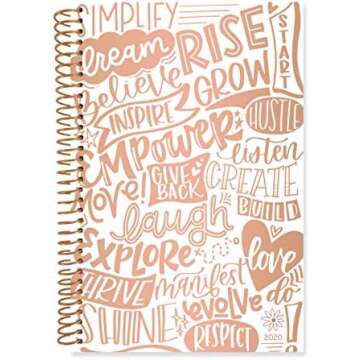 SIMPLIFY
dream
RISE
START
believe
INSPIRE
GROW
HUSTLE
EMPOWER
listen
MOVE!
GIVE BACK
CREATE
BUILD
laugh
EXPLORE
love
THRIVE
manifest
do
SHINE
evolve
RESPECT
2020